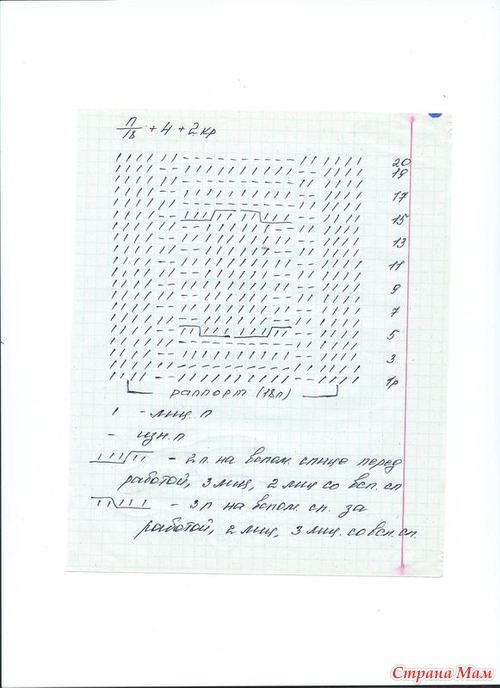 п/18 + 4 + 2кр
20
19
17
15
13
11
9
7
5
3
1р
раппорт (18п)
ı - лиц. п
– изн. п
- 2 п. на вспом. спице перед
работой, 3 лиц, 2 лиц со всп. сп
- 3 п на вспом. сп. за
работой, 2 лиц, 3 лиц. со всп. сп.
Страна Мам